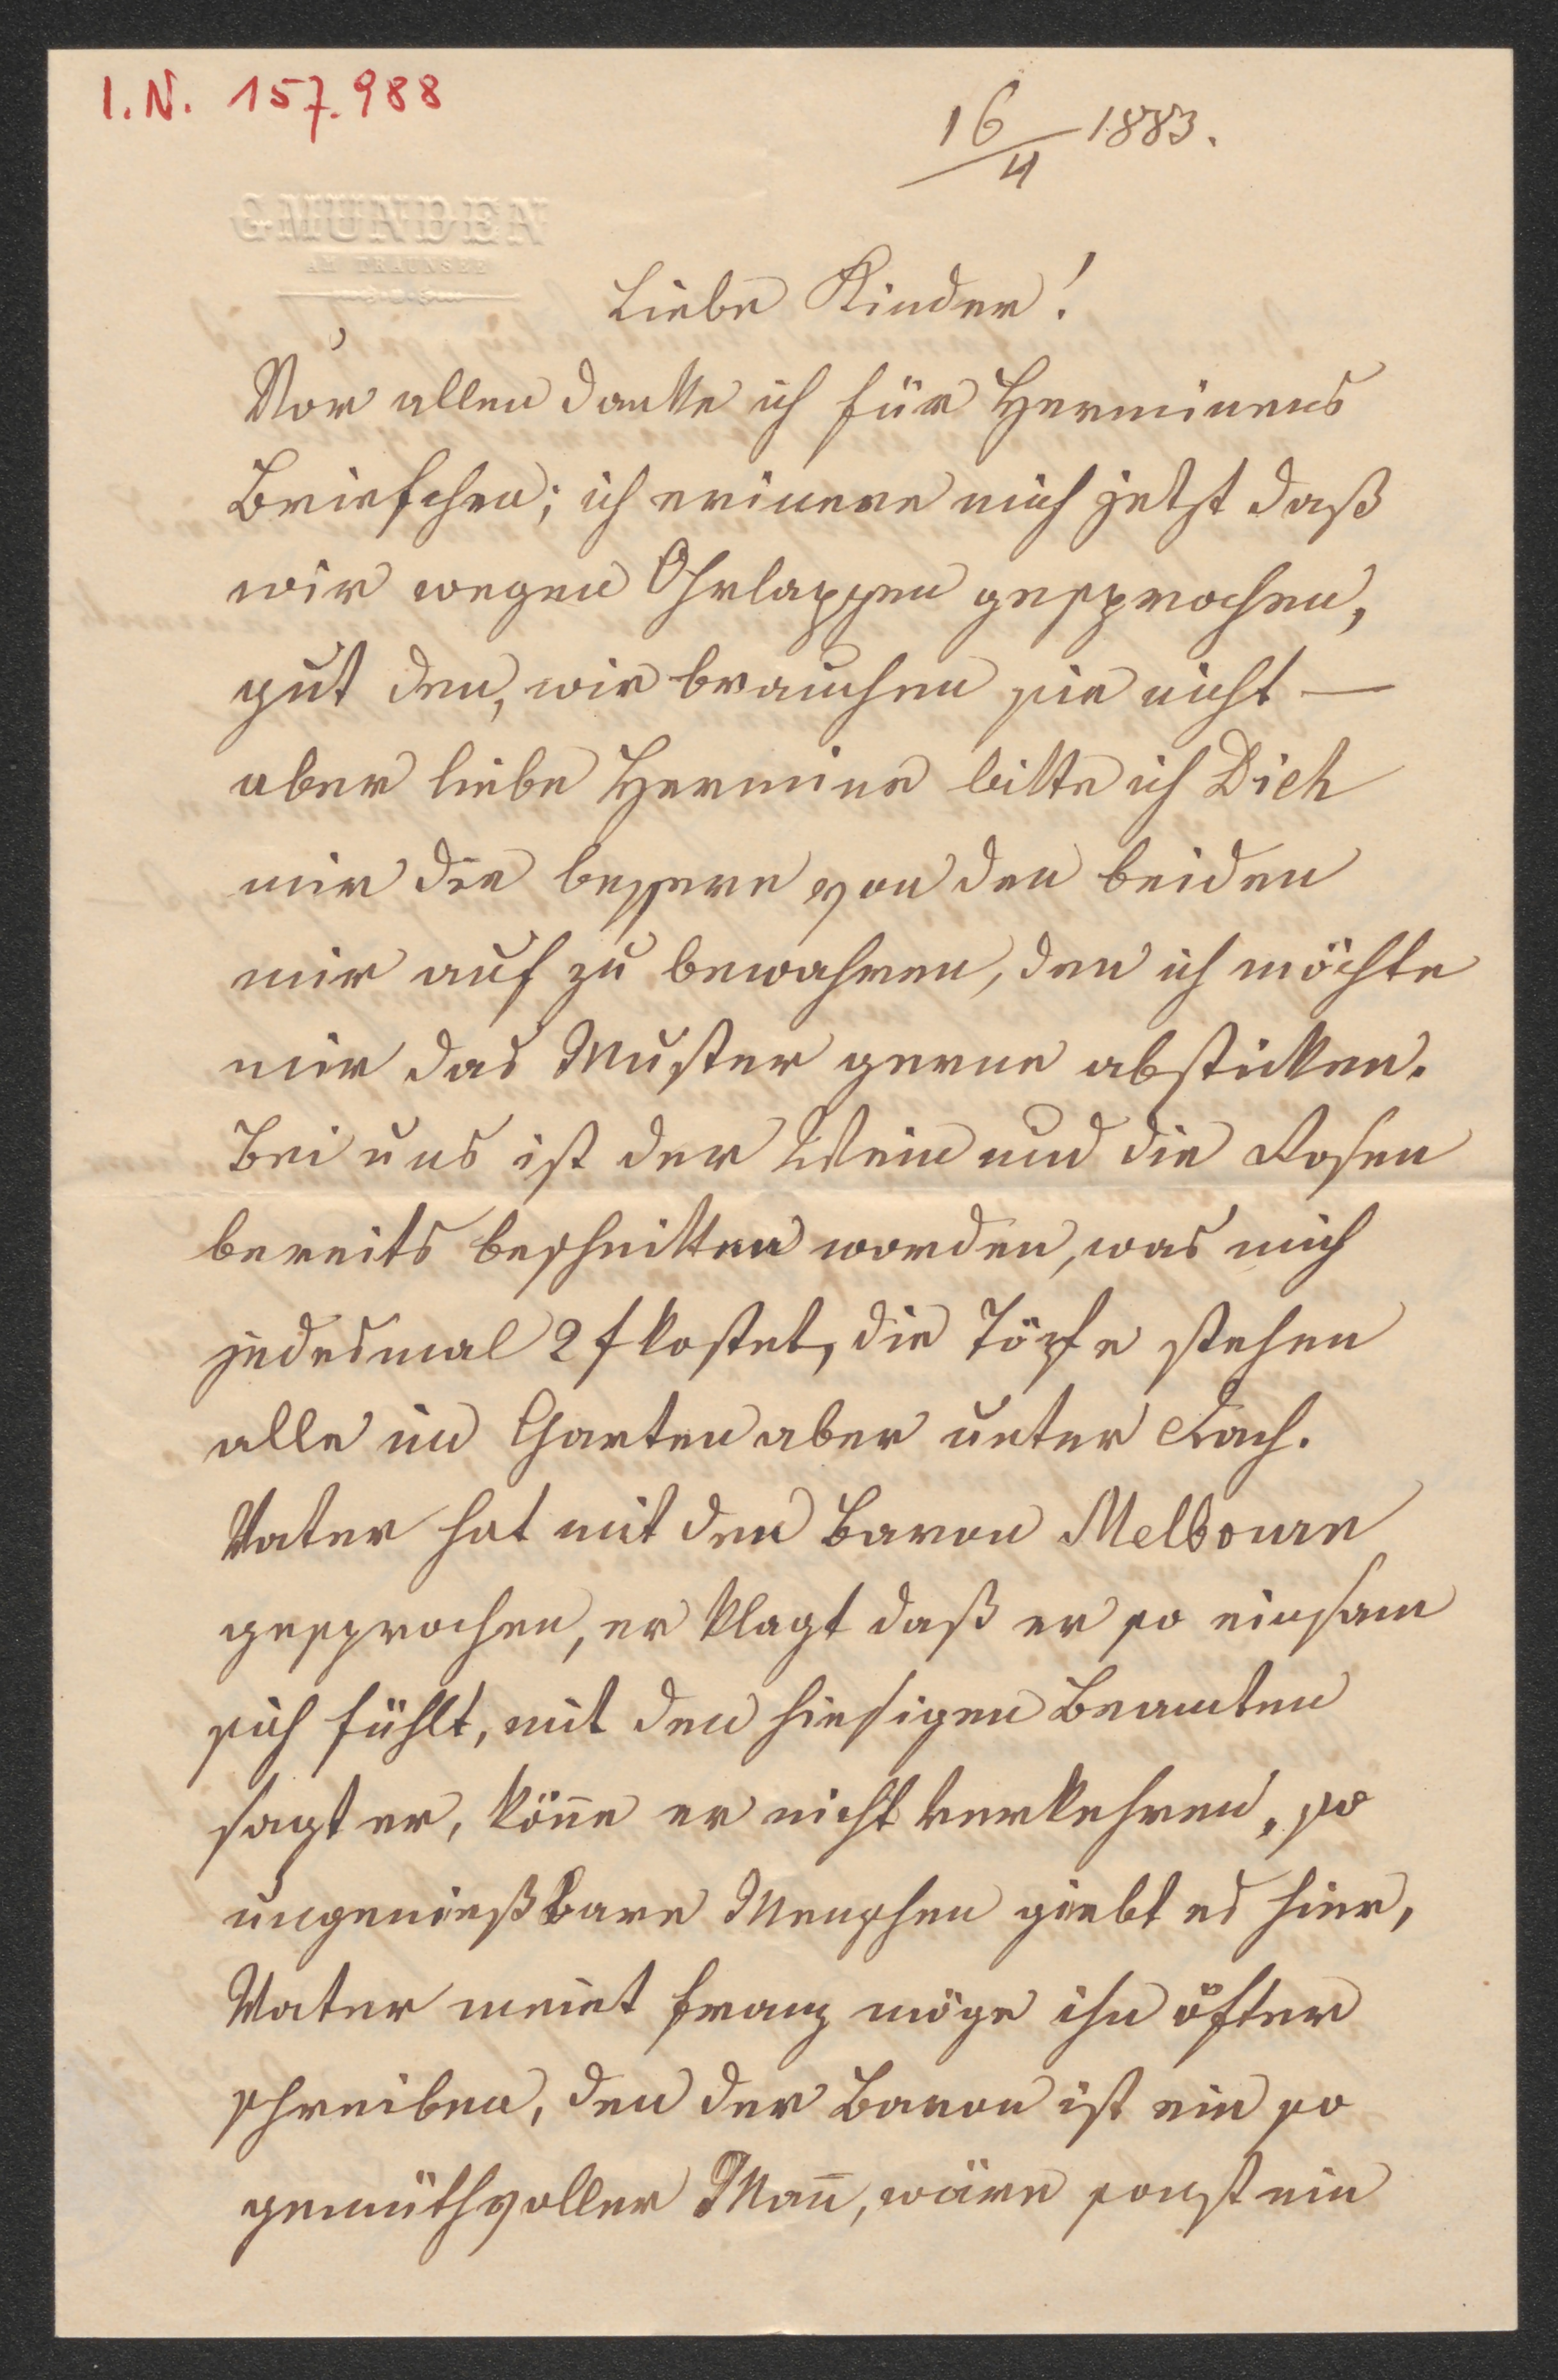 I.N. 157.988
16/4 1883.
GMUNDEN
AM TRAUNSEE
Liebe Kinder!
Vor allen danke ich für Herminens
Briefchen; ich erinere mich jetzt daß
wir wegen Ohrlappen gesprochen,
gut den, wir brauchen sie nicht —
aber liebe Hermine bitte ich Dich
mir die bessere von den beiden
mir auf zu bewahren, den ich möchte
mir das Muster gerne absticken.
Bei uns ist der Wein und die Rosen
bereits beschnitten worden, was mich
jedesmal 2 f kostet, die Töpfe stehen
alle im Garten aber unter Dach.
Vater hat mit den Baron Melboure
gesprochen, er klagt daß er so einsam
sich fühlt, mit den hiesigen Beamten
sagt er, kön̅e er nicht verkehren, so
ungenießbare Menschen giebt es hier,
Vater meint Franz möge ihn öfter
schreiben, den der Baron ist ein so
gemüthvoller Man̅, wäre sonst ein